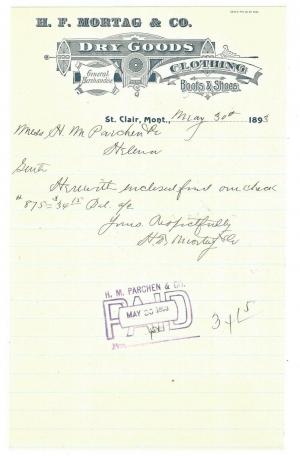 H. F. MORTAG & CO.
DRY GOODS
General Merchandise
CLOTHING
Boots & Shoes.
St. Clair, Mont., May 30th 1893
Messrs H. M. Parchen & Co
Helena
Gents
Herewith enclosed find our check
# 875 = $34 15 Bal. a/c
Yours Respectfully
H F Mortag & Co
H. M. PARCHEN & CO.
PAID
MAY 30 1893
34 15